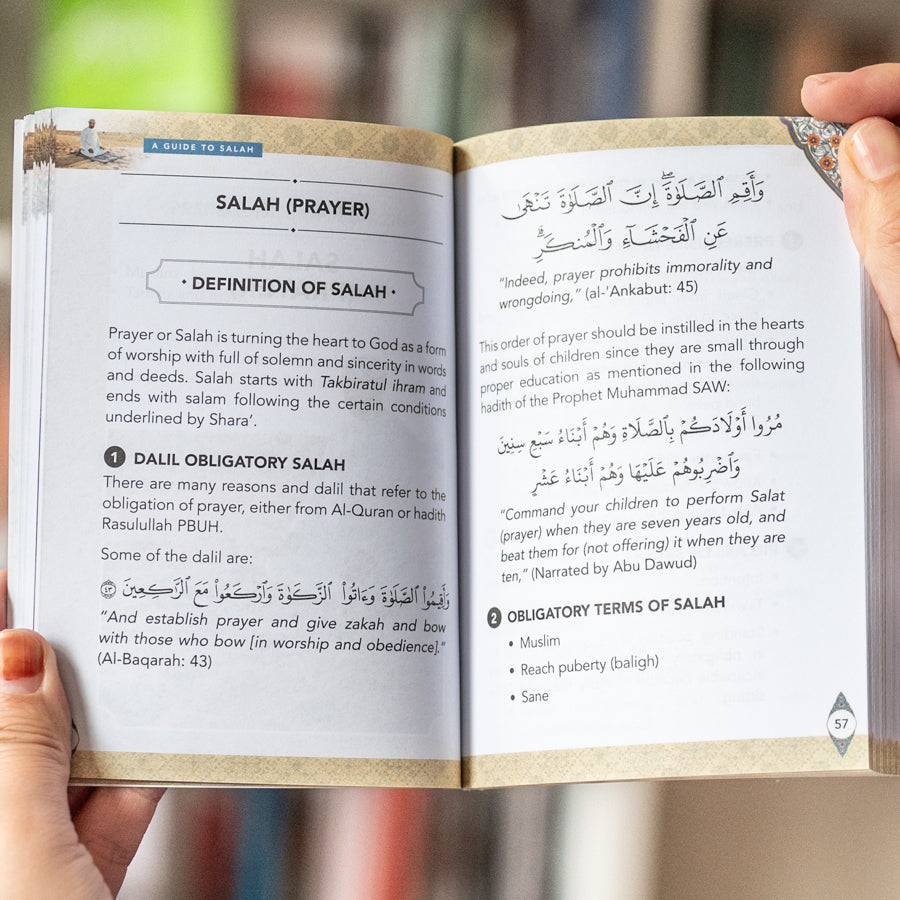 A GUIDE TO SALAH
SALAH (PRAYER)
DEFINITION OF SALAH
Prayer or Salah is turning the heart to God as a form
of worship with full of solemn and sincerity in words
and deeds. Salah starts with Takbiratul ihram and
ends with salam following the certain conditions
underlined by Shara’.
1 DALIL OBLIGATORY SALAH
There are many reasons and dalil that refer to the
obligation of prayer, either from Al-Quran or hadith
Rasulullah PBUH.
Some of the dalil are:
وَأَقِيمُواْ ٱلصَّلَوٰةَ وَءَاتُواْ ٱلزَّكَوٰةَ وَٱرْكَعُواْ مَعَ ٱلرَّٰكِعِينَ ٤٣
“And establish prayer and give zakah and bow
with those who bow [in worship and obedience].”
(Al-Baqarah: 43)
وَأَقِمِ ٱلصَّلَوٰةَۖ إِنَّ ٱلصَّلَوٰةَ تَنْهَىٰ
عَنِ ٱلْفَحْشَآءِ وَٱلْمُنكَرِۗ
“Indeed, prayer prohibits immorality and
wrongdoing,” (al-'Ankabut: 45)
This order of prayer should be instilled in the hearts
and souls of children since they are small through
proper education as mentioned in the following
hadith of the Prophet Muhammad SAW:
مُرُوا أَوْلَادَكُمْ بِالصَّلَاةِ وَهُمْ أَبْنَاءُ سَبْعِ سِنِينَ
وَٱضْرِبُوهُمْ عَلَيْهَا وَهُمْ أَبْنَاءُ عَشْرٍ
“Command your children to perform Salat
(prayer) when they are seven years old, and
beat them for (not offering) it when they are
ten,” (Narrated by Abu Dawud)
2 OBLIGATORY TERMS OF SALAH
• Muslim
• Reach puberty (baligh)
• Sane
57